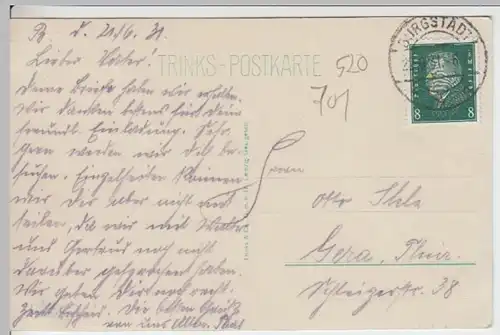 d. 20/6. 31.
Lieber Vater!
Deine Briefe haben wir erhalten.
Wir danken bestens für Dein
freundl. Einladung. Sehr
gern werden wir Dich be-
suchen. Einzelheiten können
wir Dir aber nicht mit-
teilen, da wir mit Walter
und Gertrud noch nicht
darüber gesprochen haben.
Wir geben Dir noch recht-
zeitig Bescheid. Die besten Grüße
von uns allen.
TRINKS-POSTKARTE
520
701
BURGSTÄDT
8 8
Herrn
Otto
Gera, Thür.
Schleizerstr. 38